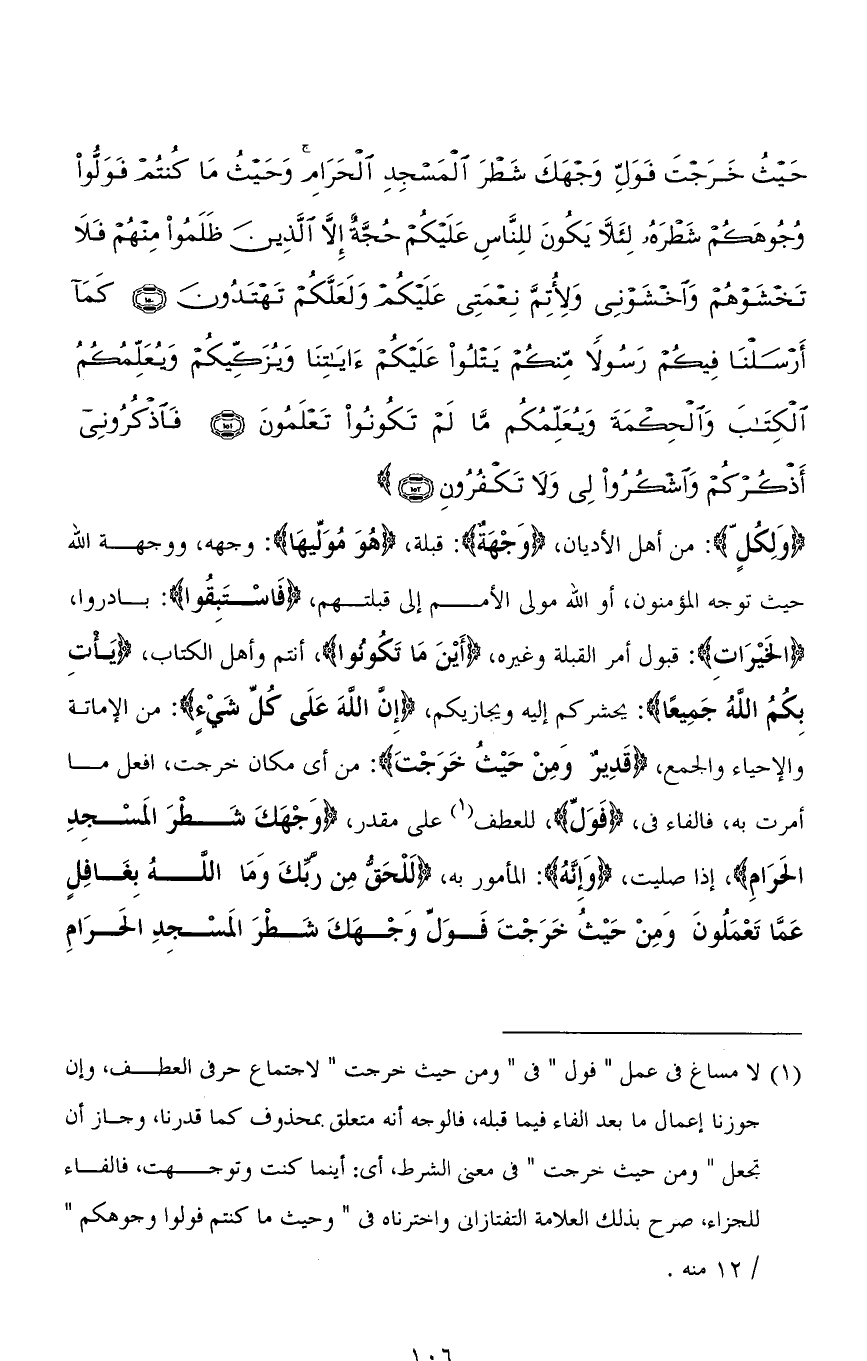 حَيْثُ خَرَجْتَ فَوَلِّ وَجْهَكَ شَطْرَ ٱلْمَسْجِدِ ٱلْحَرَامِۚ وَحَيْثُ مَا كُنتُمْ فَوَلُّوا۟
وُجُوهَكُمْ شَطْرَهُۥ لِئَلَّا يَكُونَ لِلنَّاسِ عَلَيْكُمْ حُجَّةٌ إِلَّا ٱلَّذِينَ ظَلَمُوا۟ مِنْهُمْ فَلَا
تَخْشَوْهُمْ وَٱخْشَوْنِى وَلِأُتِمَّ نِعْمَتِى عَلَيْكُمْ وَلَعَلَّكُمْ تَهْتَدُونَ ١٥٠ كَمَآ
أَرْسَلْنَا فِيكُمْ رَسُولًا مِّنكُمْ يَتْلُوا۟ عَلَيْكُمْ ءَايَٰتِنَا وَيُزَكِّيكُمْ وَيُعَلِّمُكُمُ
ٱلْكِتَٰبَ وَٱلْحِكْمَةَ وَيُعَلِّمُكُم مَّا لَمْ تَكُونُوا۟ تَعْلَمُونَ ١٥١ فَٱذْكُرُونِىٓ
أَذْكُرْكُمْ وَٱشْكُرُوا۟ لِى وَلَا تَكْفُرُونِ ١٥٢ ﴾
﴿وَلِكُلٍّ﴾: من أهل الأديان، ﴿وَجْهَةٌ﴾: قبلة، ﴿هُوَ مُوَلِّيهَا﴾: وجهه، ووجهة الله
حيث توجه المؤمنون، أو الله مولى الأمم إلى قبلتهم، ﴿فَاسْتَبِقُوا﴾: بادروا،
﴿الخَيْرَاتِ﴾: قبول أمر القبلة وغيره، ﴿أَيْنَ مَا تَكُونُوا﴾، أنتم وأهل الكتاب، ﴿يَأْتِ
بِكُمُ اللَّهُ جَمِيعًا﴾: يحشركم إليه ويجازيكم، ﴿إِنَّ اللَّهَ عَلَى كُلِّ شَيْءٍ﴾: من الإماتة
والإحياء والجمع، ﴿قَدِيرٌ وَمِنْ حَيْثُ خَرَجْتَ﴾: من أى مكان خرجت، افعل ما
أمرت به، فالفاء فى، ﴿فَوَلِّ﴾، للعطف(١) على مقدر، ﴿وَجْهَكَ شَطْرَ المَسْجِدِ
الحَرَامِ﴾، إذا صليت، ﴿وَإِنَّهُ﴾: المأمور به، ﴿لَلْحَقُّ مِن رَّبِّكَ وَمَا اللَّهُ بِغَافِلٍ
عَمَّا تَعْمَلُونَ وَمِنْ حَيْثُ خَرَجْتَ فَوَلِّ وَجْهَكَ شَطْرَ المَسْجِدِ الحَرَامِ
(١) لا مساغ فى عمل " فول " فى " ومن حيث خرجت " لاجتماع حرفى العطف، وإن
جوزنا إعمال ما بعد الفاء فيما قبله، فالوجه أنه متعلق بمحذوف كما قدرنا، وجاز أن
تجعل " ومن حيث خرجت " فى معنى الشرط، أى: أينما كنت وتوجهت، فالفاء
للجزاء، صرح بذلك العلامة التفتازانى واخترناه فى " وحيث ما كنتم فولوا وجوهكم "
/ ١٢ منه .
١٠٦